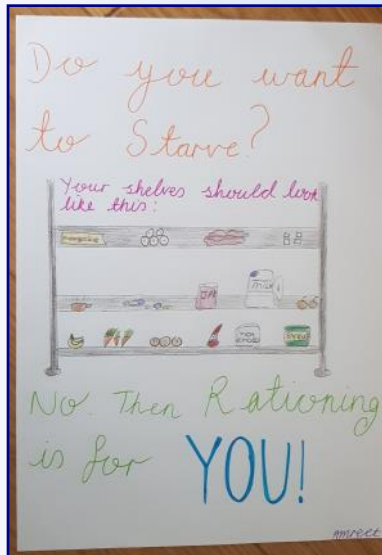 Do you want
to Starve?
Your shelves should look
like this:
Milk
JAM
No. Then Rationing
is for YOU!
Amreet